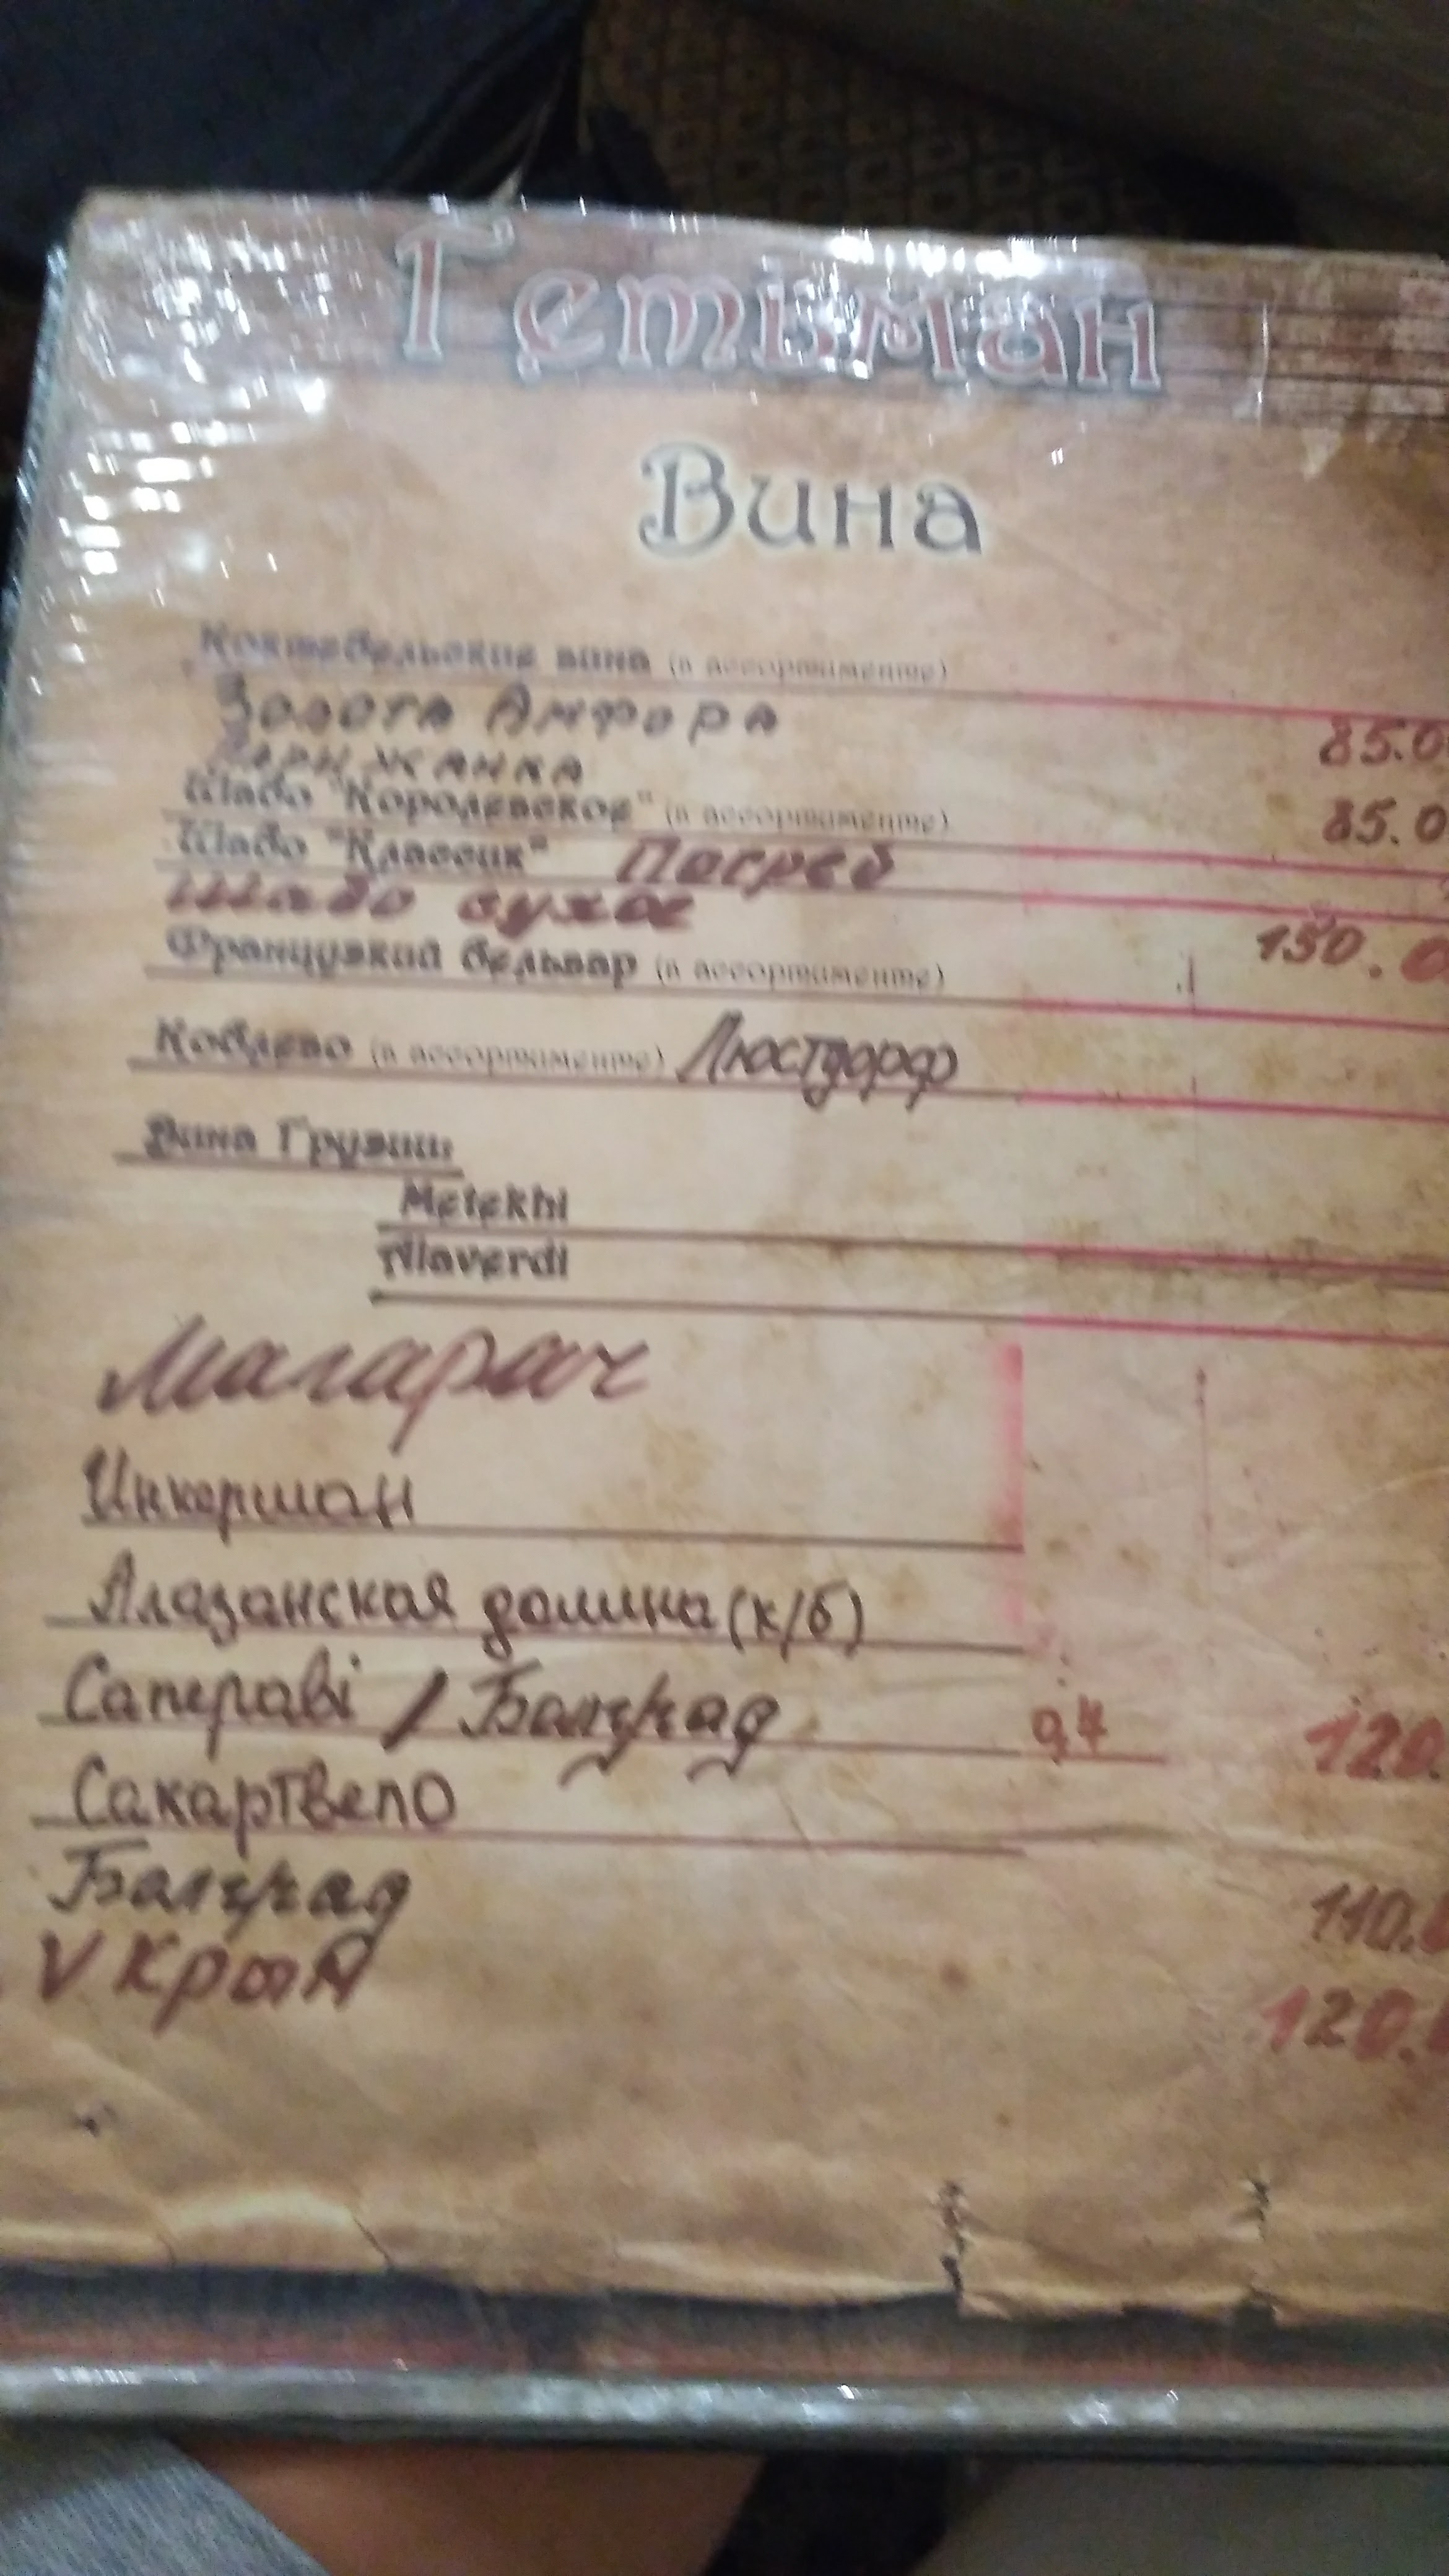 Гетьман
Вина
Коктебельские вина (в ассортименте)
Золота Амфора 85.0
Шабо "Королевское" (в ассортименте) 85.0
Шабо "Классик" Погреб
Шабо сухое 150.0
Французкий бельвар (в ассортименте)
Коблево (в ассортименте) Люстдорф
Вина Грузии
Metekhi
Alaverdi
Магарач
Инкерман
Алазанская долина (к/б)
Саперaві / Болград 0,7 120.
Сакартвело
Болград 110.0
V Крым 120.0